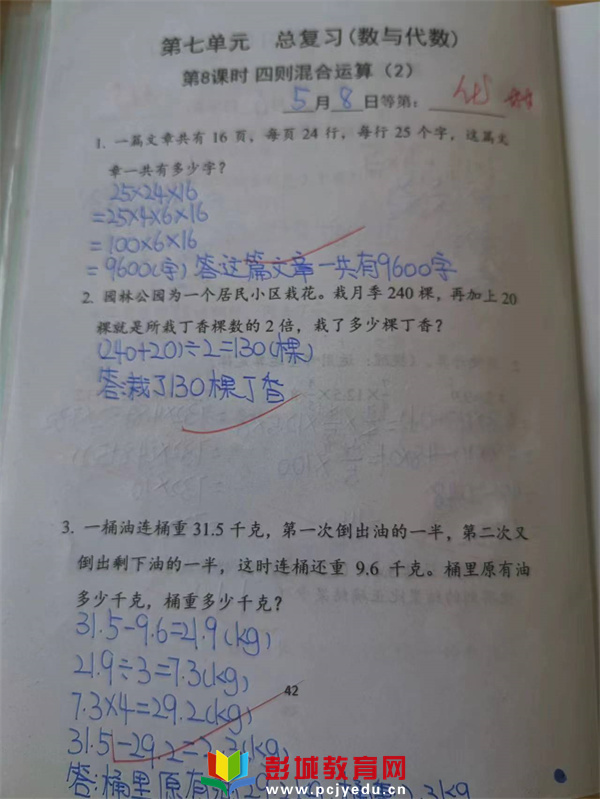 第七单元 总复习(数与代数)
第8课时 四则混合运算（2）
5月8日等第：
1. 一篇文章共有 16 页，每页 24 行，每行 25 个字，这篇文
章一共有多少字？
25×24×16
=25×4×6×16
=100×6×16
=9600(字) 答:这篇文章一共有9600字
2. 园林公园为一个居民小区栽花。栽月季 240 棵，再加上 20
棵就是所栽丁香棵数的 2 倍，栽了多少棵丁香？
(240+20)÷2=130(棵)
答:栽了130棵丁香
3. 一桶油连桶重 31.5 千克，第一次倒出油的一半，第二次又
倒出剩下油的一半，这时连桶还重 9.6 千克。桶里原有油
多少千克，桶重多少千克？
31.5-9.6=21.9(kg)
21.9÷3=7.3(kg)
7.3×4=29.2(kg)
42
31.5-29.2=2.3(kg)
答:桶里原有油29.2
彭城教育网
www.pcjyedu.cn